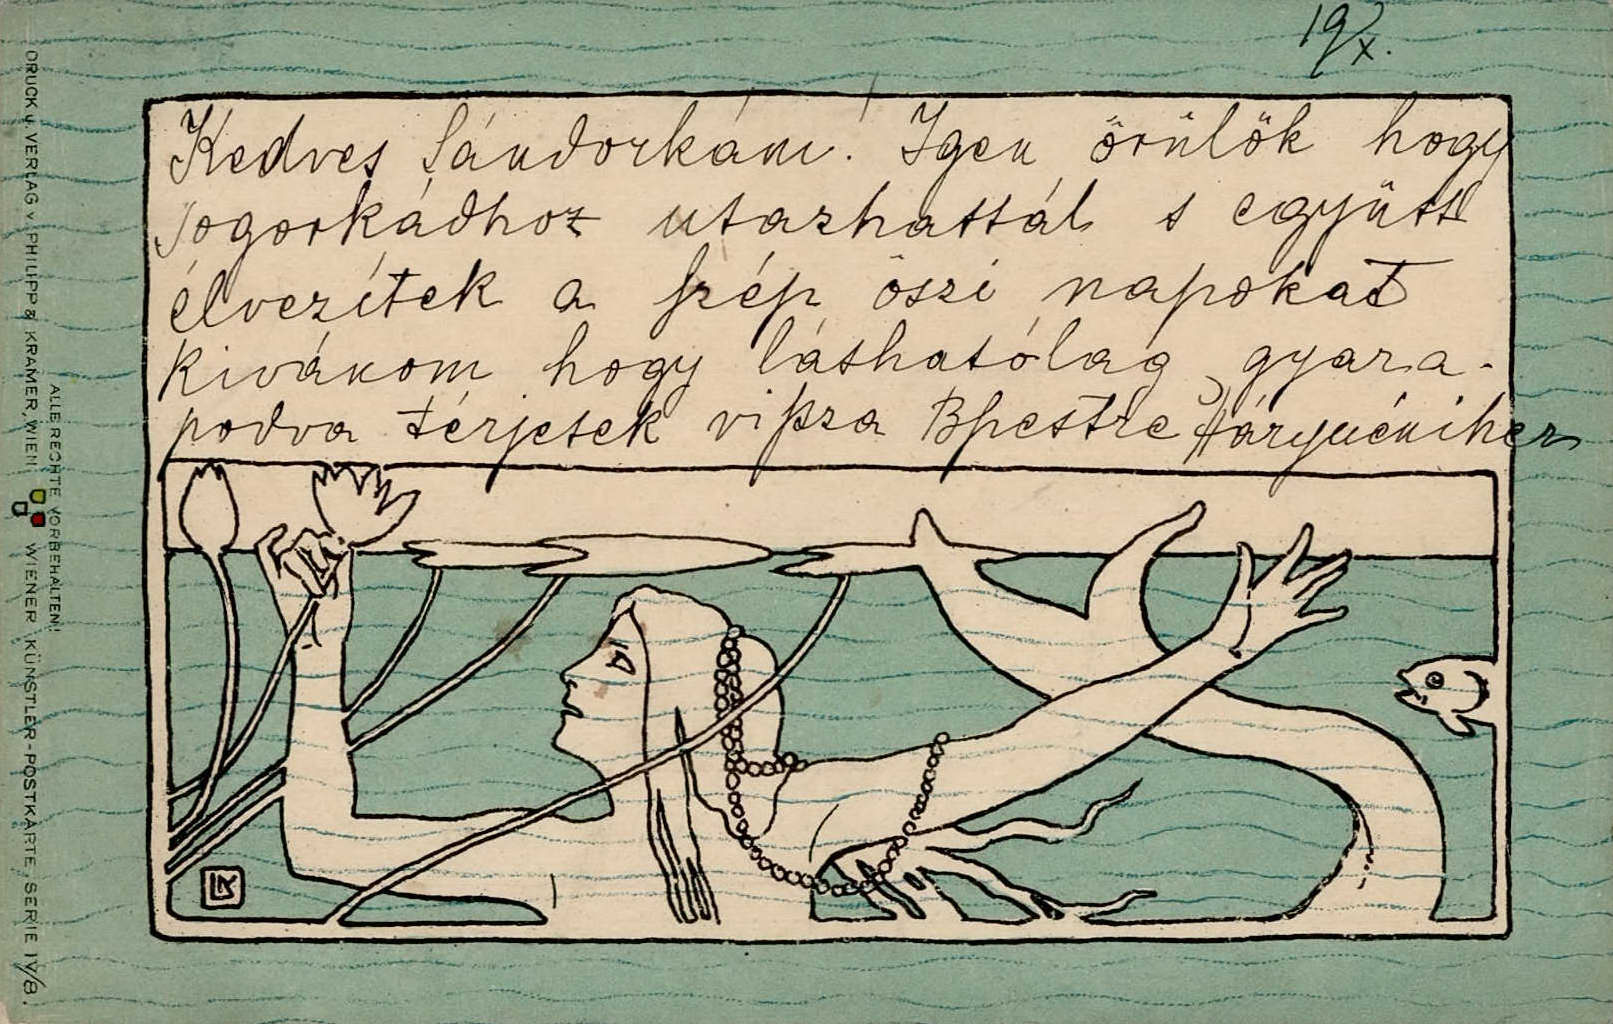 19/X.
Kedves Sándorkám! Igen örülök hogy
sogorkádhoz utazhattál s együtt
élvezítek a szép öszi napokat
kivánom hogy láthatólag gyara-
podva térjetek viszsza Bpestre
DRUCK u. VERLAG v. PHILIPP & KRAMER, WIEN. WIENER KÜNSTLER-POSTKARTE, SERIE IV/8.
ALLE RECHTE VORBEHALTEN!